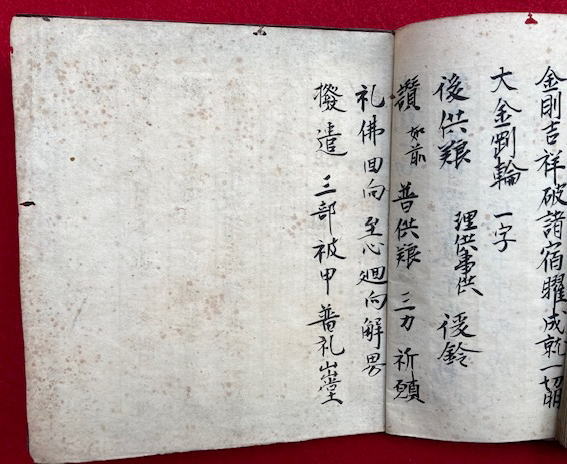 金剛吉祥破諸宿曜成就一切明
大金剛輪 一字
後供養 理供事供 後鈴
讚 如前 普供養 三力 祈願
礼佛 回向 至心廻向 解界
撥遣 三部被甲 普礼出堂